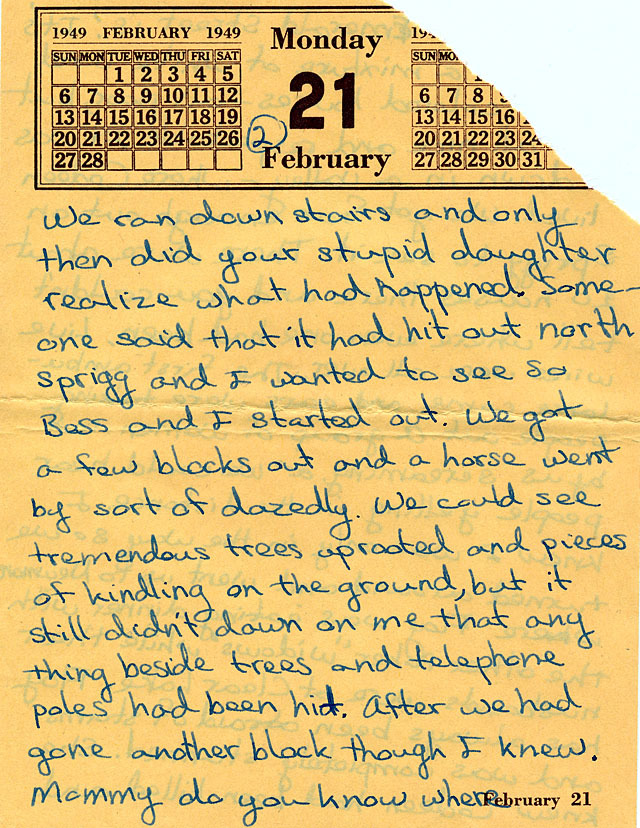 1949 FEBRUARY 1949
SUN MON TUE WED THU FRI SAT
1 2 3 4 5
6 7 8 9 10 11 12
13 14 15 16 17 18 19
20 21 22 23 24 25 26
27 28
Monday
21
2
February
194
SUN MON TUE WED
6 7 8 9
13 14 15 16
20 21 22 23 24
27 28 29 30 31
We ran down stairs and only
then did your stupid daughter
realize what had happened. Some-
one said that it had hit out north
sprigg and I wanted to see so
Bess and I started out. We got
a few blocks out and a horse went
by sort of dazedly. We could see
tremendous trees uprooted and pieces
of kindling on the ground, but it
still didn't dawn on me that any
thing beside trees and telephone
poles had been hit. After we had
gone another block though I knew.
Mommy do you know where
February 21